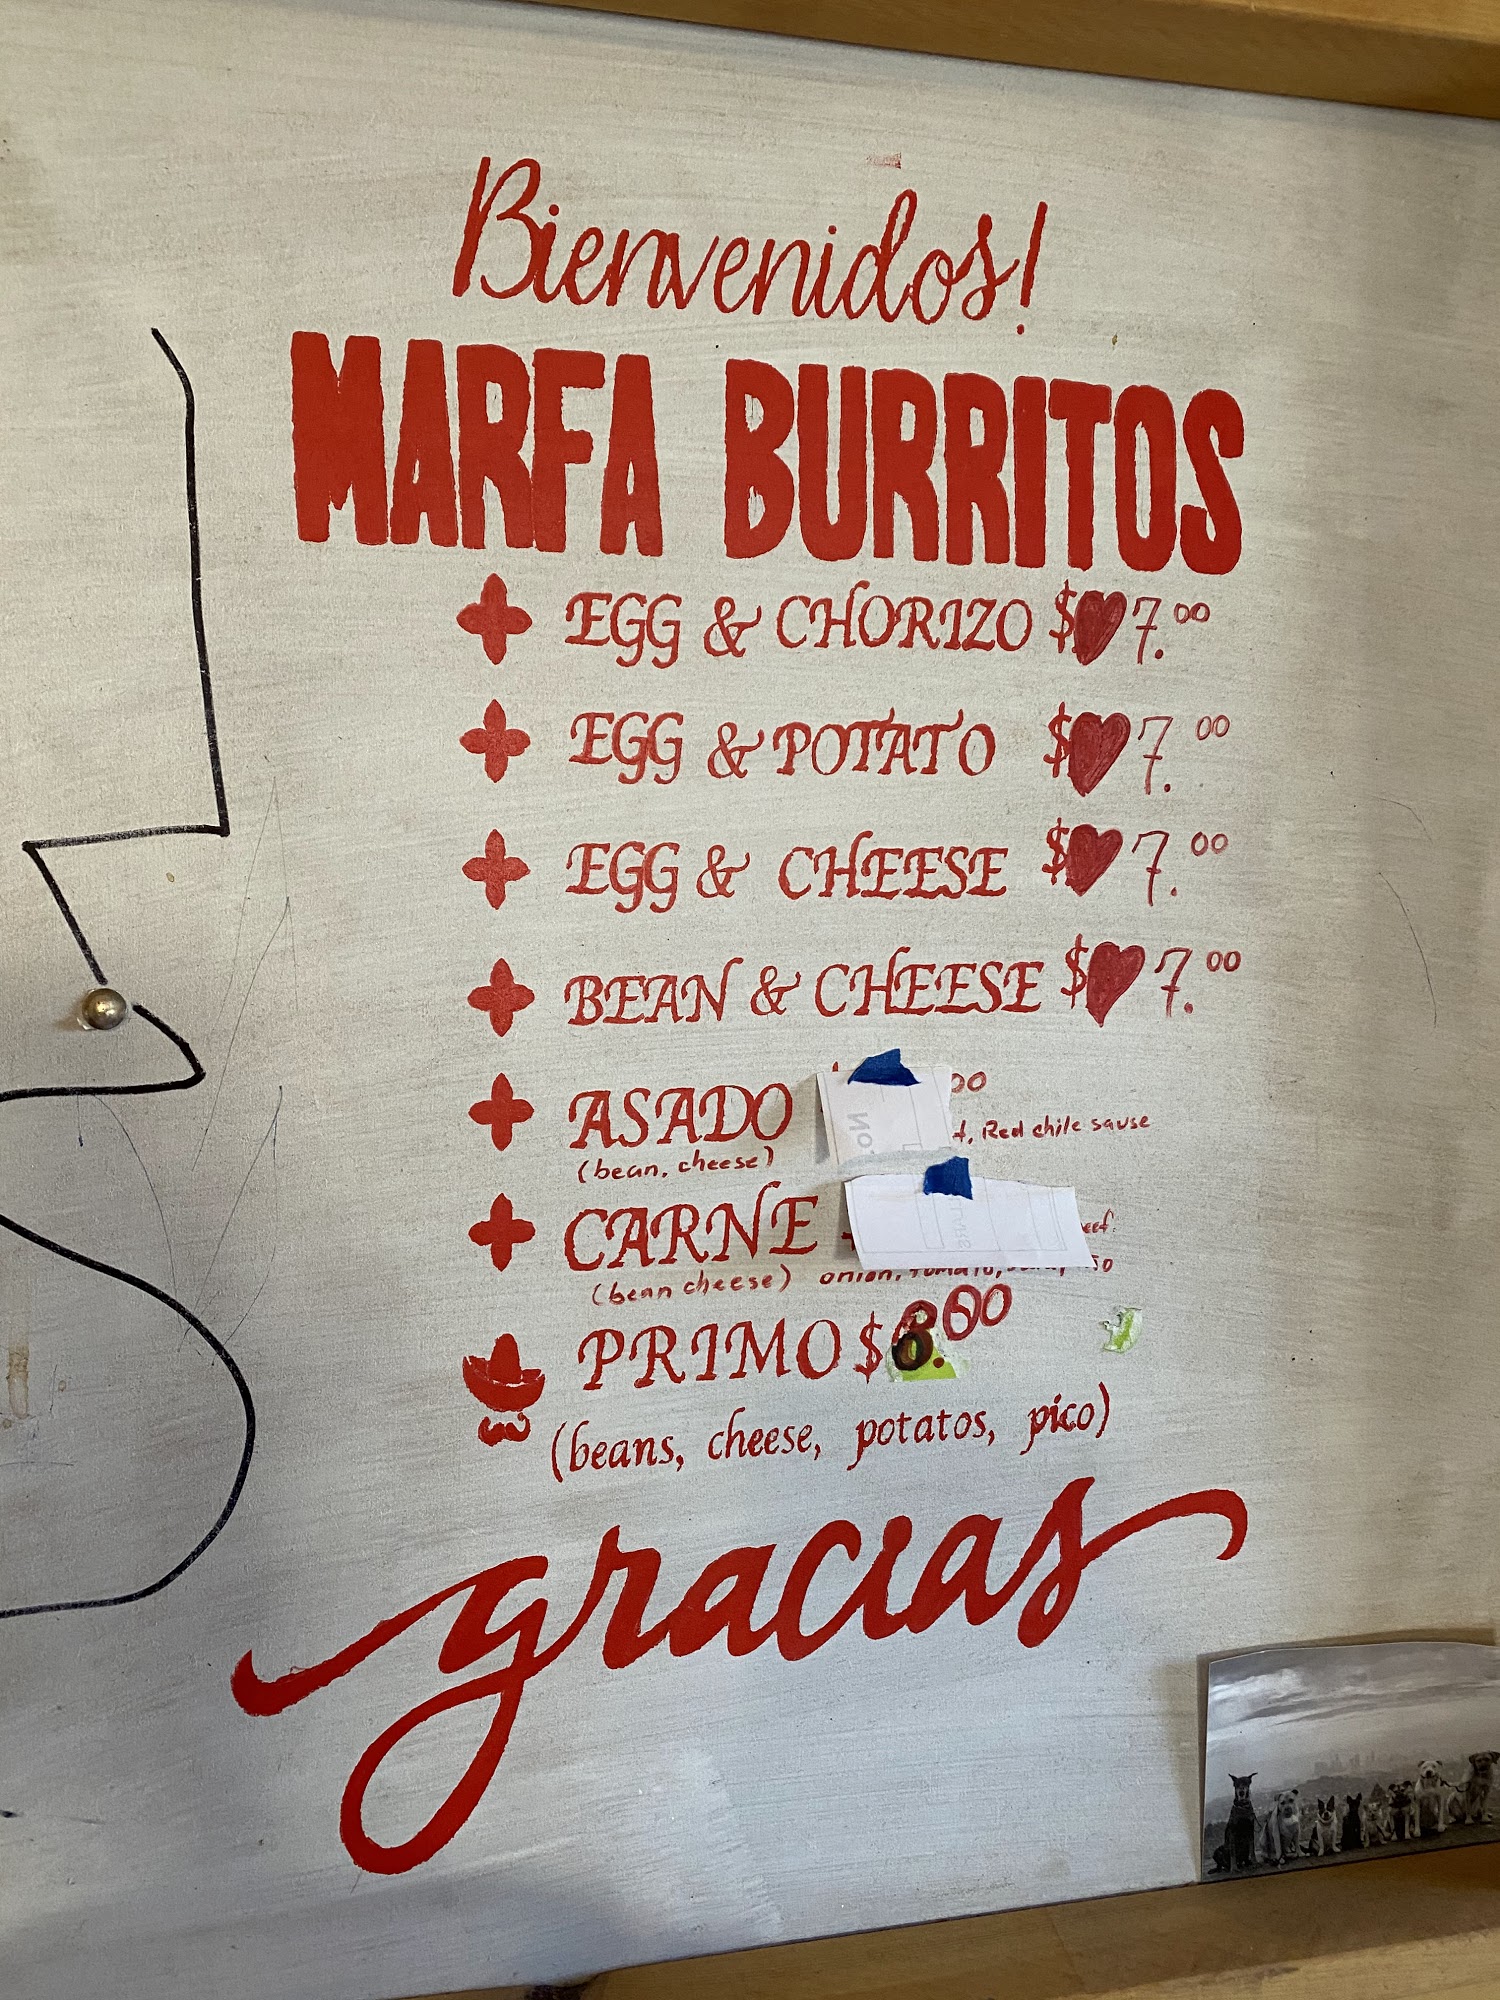 Bienvenidos!
MARFA BURRITOS
EGG & CHORIZO $ 7.00
EGG & POTATO $ 7.00
EGG & CHEESE $ 7.00
BEAN & CHEESE $ 7.00
ASADO
Red chile sause
(bean, cheese)
CARNE
(bean cheese) onion, tomato,
PRIMO $8.00
(beans, cheese, potatos, pico)
gracias